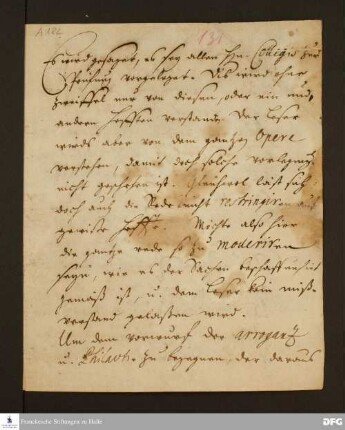 A182
131
Es wird gesaget, es sey allen Hn. Collegis zur
Prüfung vorgeleget. Es wird ohne
zweiffel nur von diesen, oder ein und
andern Hefften verstanden. Der Leser
wirds aber von dem gantzen Opere
verstehen, damit doch solche vorlegung
nicht geschehen ist. Gleichwol läst sich
doch auch die Rede nicht restringiren auf
gewisse Heffte. Möchte also hier
die gantze rede so zu moderiren
seyn, wie es der Sachen beschaffenheit
gemäß ist, u. dem Leser kein miß-
verstand gelaßen wird.
Um dem vorwurf der arroganz
u. Philauti zu begegnen, der daraus
Franckesche Stiftungen zu Halle
DFG